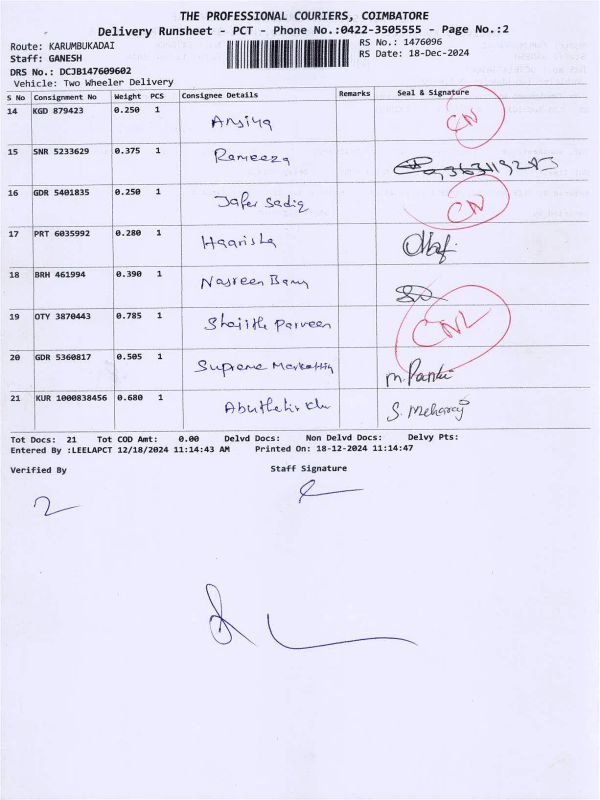 THE PROFESSIONAL COURIERS, COIMBATORE
Delivery Runsheet - PCT - Phone No.:0422-3505555 - Page No.:2
Route: KARUMBUKADAI RS No.: 1476096
Staff: GANESH RS Date: 18-Dec-2024
DRS No.: DCJB147609602
Vehicle: Two Wheeler Delivery
S No Consignment No Weight PCS Consignee Details Remarks Seal & Signature
14 KGD 879423 0.250 1 Ansiya CN
15 SNR 5233629 0.375 1 Rameeza
16 GDR 5401835 0.250 1 Jafer Sadiq CN
17 PRT 6035992 0.280 1 Haarisha
18 BRH 461994 0.390 1 Nasreen Banu
19 OTY 3870443 0.785 1 Parveen CNL
20 GDR 5360817 0.505 1 Supreme Marketting
21 KUR 1000838456 0.680 1 S. Meharaj
Tot Docs: 21 Tot COD Amt: 0.00 Delvd Docs: Non Delvd Docs: Delvy Pts:
Entered By :LEELAPCT 12/18/2024 11:14:43 AM Printed On: 18-12-2024 11:14:47
Verified By Staff Signature